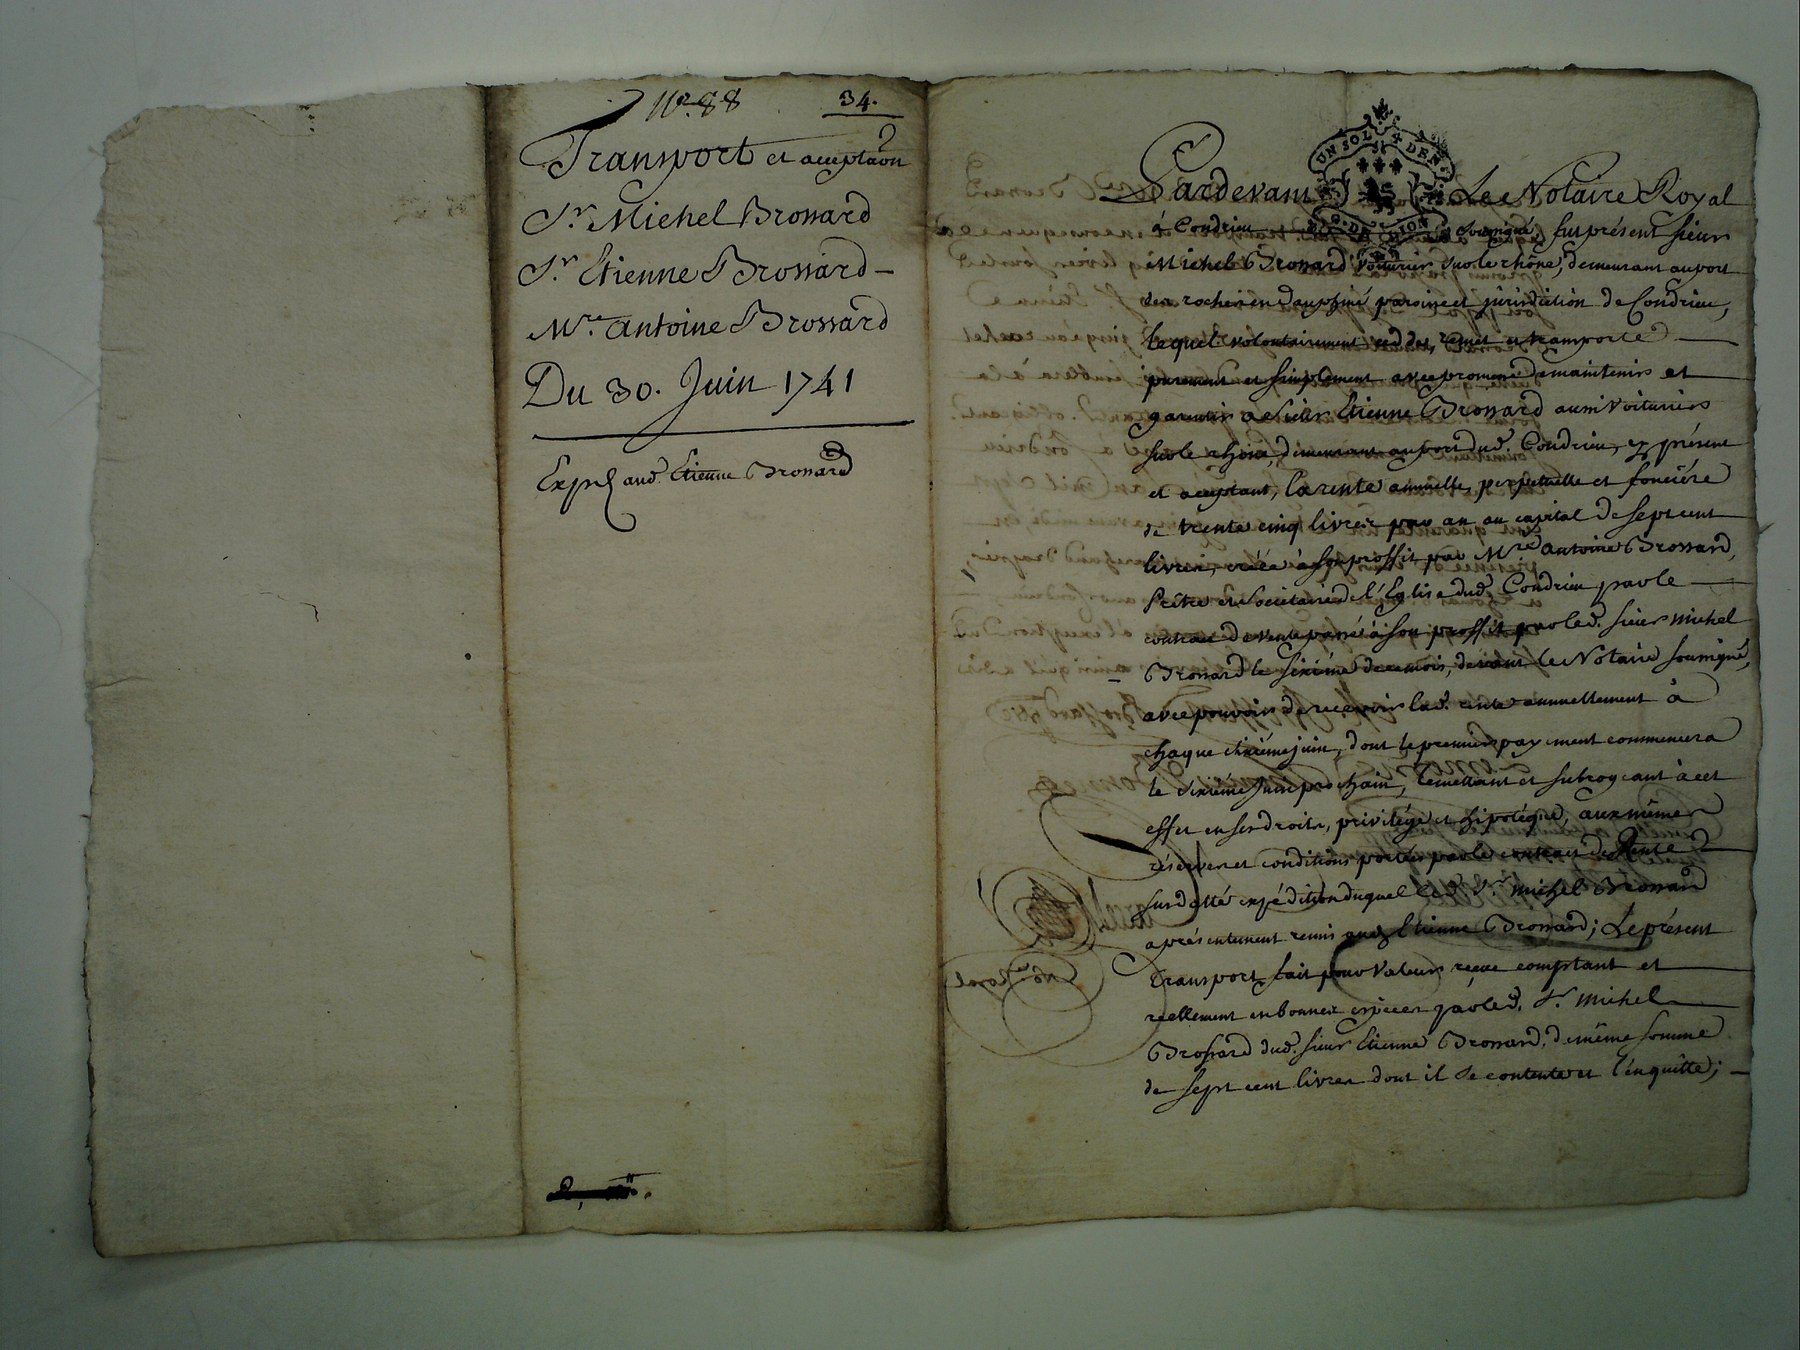 N.º 88
34.
Transport et acceptaõn
S.r Michel Brossard
S.r Etienne Brossard
M.re Antoine Brossard
Du 30. Juin 1741
Exp.é aud. Etienne Brossard
UN SOL X DEN
G. DE LION
Pardevant Le Notaire Royal
à Condrieu soussigné, fut présent sieur
Michel Brossard voiturier sur le rhône, demeurant au port
des roches en dauphiné paroisse et jurisdiction de Condrieu,
lequel volontairement ced des remet et transporte
purement et simplement avec promesse de maintenir et
garentir a sieur Etienne Brossard aussi voiturier
sur le rhône, demeurant au port dud. Condrieu, cy présent
et acceptant, la rente annuelle, perpetuelle et fonciére
de trente cinq livres par an au capital de sept cent
livres, créée à son proffit par M.re Antoine Brossard,
Prêtre et Sociétaire de l'Eglise dud. Condrieu par le
contrat de vente passé à son proffit par led. sieur Michel
Brossard le sixiéme de ce mois, devant le Notaire soussigné,
avec pouvoir de recevoir lad. rente annuellement à
chaque sixiéme juin, dont le premier payement commencera
le sixiéme Juin prochain, le mettant et subrogeant à cet
effet en ses droits, privilége et hipotéque, aux mêmes
réserves et conditions portées par le contract de Rente
susdatté expédition duquel led. S.r Michel Brossard
a présentement remis aud. Etienne Brossard; Le présent
Transport fait pour valeur reçue comptant et
reellement en bonnes espéces par led. S.r Michel
Brossard dud. sieur Etienne Brossard, de même somme
de sept cent livres dont il se contente et l'en quitte;